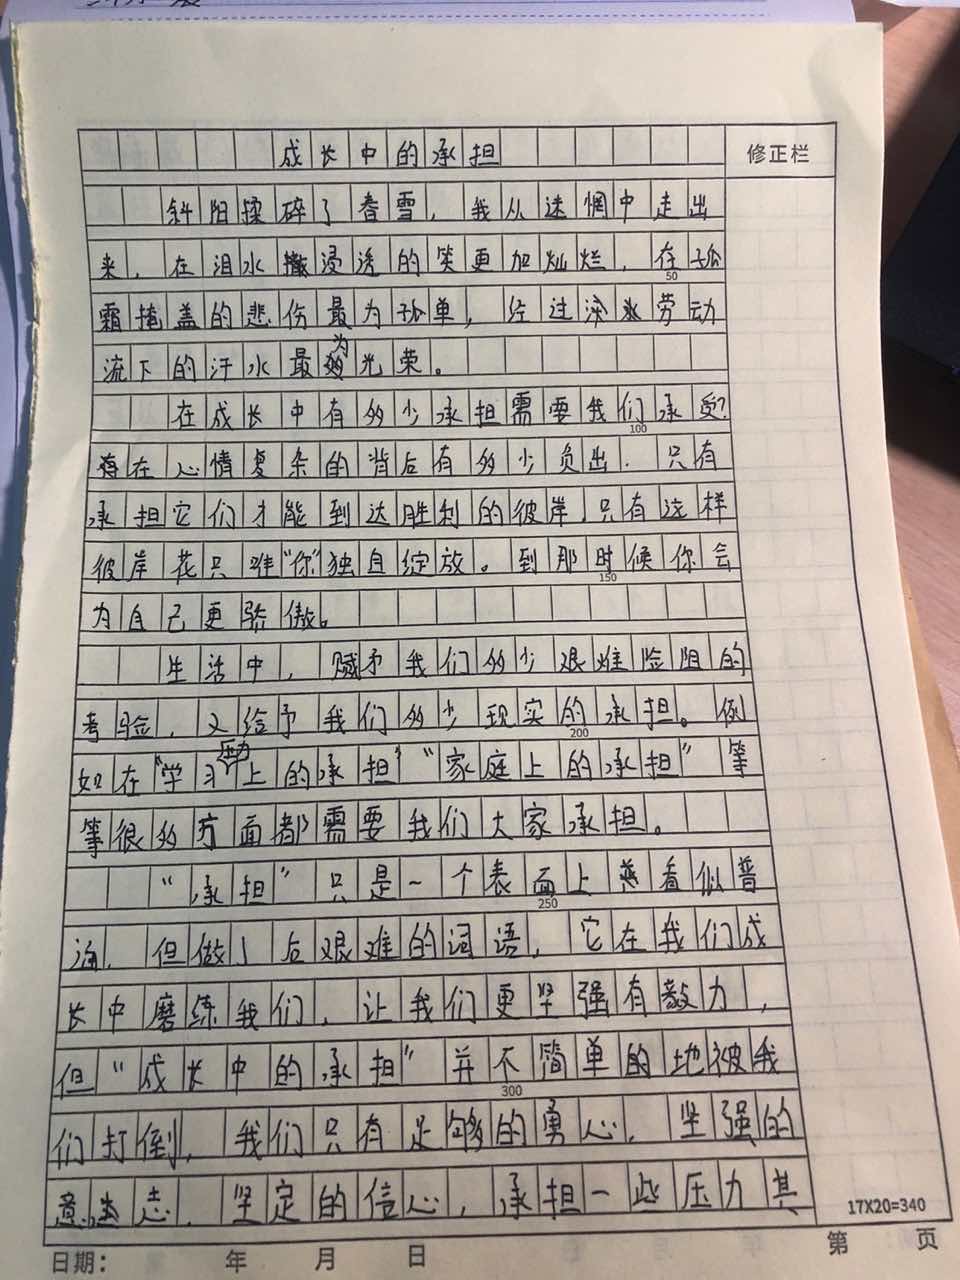 成长中的承担
修正栏
斜阳揉碎了春雪，我从迷惘中走出
来，在泪水浸透的笑更加灿烂，在孤
50
霜掩盖的悲伤最为孤单，经过流水劳动
流下的汗水最为光荣。
在成长中有多少承担需要我们承受？
100
在心情复杂的背后有多少负出，只有
承担它们才能到达胜利的彼岸，只有这样
彼岸花只唯"你"独自绽放。到那时候你会
150
为自己更骄傲。
生活中，赋予我们多少艰难险阻的
考验，又给予我们多少现实的承担。例
200
如在"学习压力上的承担""家庭上的承担"等
等很多方面都需要我们大家承担。
"承担"只是一个表面上看似普
250
通，但做了后艰难的词语，它在我们成
长中磨练我们，让我们更坚强有毅力，
但"成长中的承担"并不简单的地被我
300
们打倒，我们只有足够的勇心，坚强的
意志，坚定的信心，承担一些压力其
17X20=340
日期： 年 月 日 第 页